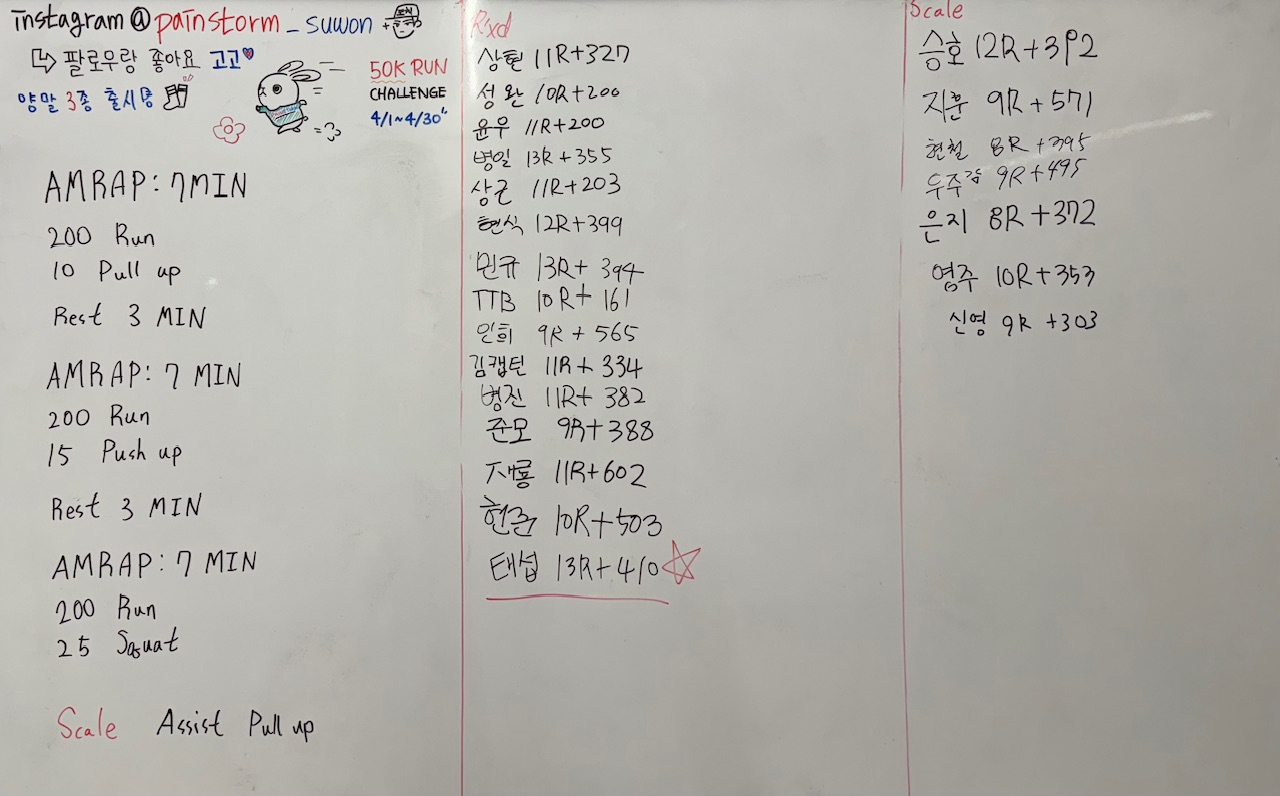 instagram@painstorm_suwon
팔로우랑 좋아요 고고
양말 3종 출시중
50K RUN
CHALLENGE
4/1~4/30
AMRAP: 7MIN
200 Run
10 Pull up
Rest 3 MIN
AMRAP: 7 MIN
200 Run
15 Push up
Rest 3 MIN
AMRAP: 7 MIN
200 Run
25 Squat
Scale Assist Pull up
Rxd
상현 11R+327
성완 10R+200
윤우 11R+200
병일 13R+355
상근 11R+203
현식 12R+399
민규 13R+394
TTB 10R+161
인희 9R+565
김캡틴 11R+334
병진 11R+382
준모 9R+388
재룡 11R+602
현준 10R+503
태섭 13R+410
Scale
승호 12R+392
지훈 9R+571
현철 8R+395
우주감 9R+495
은지 8R+372
영주 10R+353
신영 9R+303